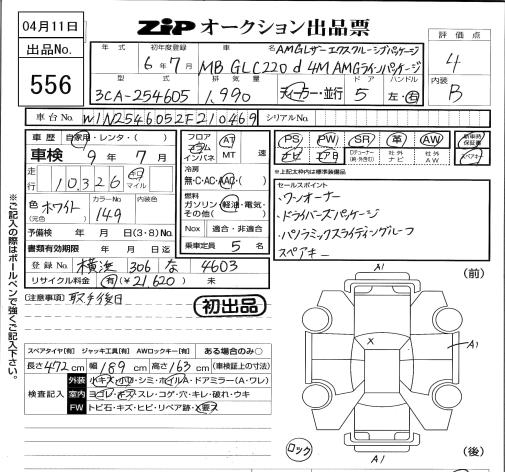 04月11日
ZIP オークション出品票
出品No.
556
年式 初年度登録 車名 評価点
6年7月 MB GLC220 d 4M AMGラインパッケージ
AMGレザーエクスクルーシブパッケージ
4
型式 排気量 ドア ハンドル 内装
3CA-254605 1,990 ディーラー・並行 5 左・右 B
車台No. W1N2546052F210469 シリアルNo.
車歴 自家用・レンタ・( )
車検 9年7月
走行 10326 キロ マイル
色(元色) ホワイト カラーNo. 149 内装色
予備検 年 月 日(3・8)No.
書類有効期限 年 月 日迄
登録No. 横浜 306 な 4603
リサイクル料金 有(¥21,620) 未
フロア コラム インパネ AT MT 速
冷房 無・C・AC・AAC・( )
燃料 ガソリン・軽油・電気・その他( )
Nox 適合・非適合
乗車定員 5 名
PS PW SR 革 AW 新車時保証書
ナビ エアB 社外ナビ 社外AW スペアキー
※上記太枠内は標準装備品
セールスポイント
・ワンオーナー
・ドライバーズパッケージ
・パノラミックスライディングルーフ
スペアキー
[注意事項] 取手後日
初出品
※ご記入の際はボールペンで強くご記入下さい。
スペアタイヤ[有] ジャッキ工具[有] AWロックキー[有] ある場合のみ○
長さ 472 cm 幅 189 cm 高さ 163 cm (車検証上の寸法)
検査記入 外装 小キズ・小凹・シミ・ホイルA・ドアミラー(A・ワレ)
室内 ヨゴレ・キズ・スレ・コゲ・穴・キレ・破れ・ウキ
FW トビ石・キズ・ヒビ・リペア跡・X要ス
A1 (前)
X
A1
ロック A1 (後)